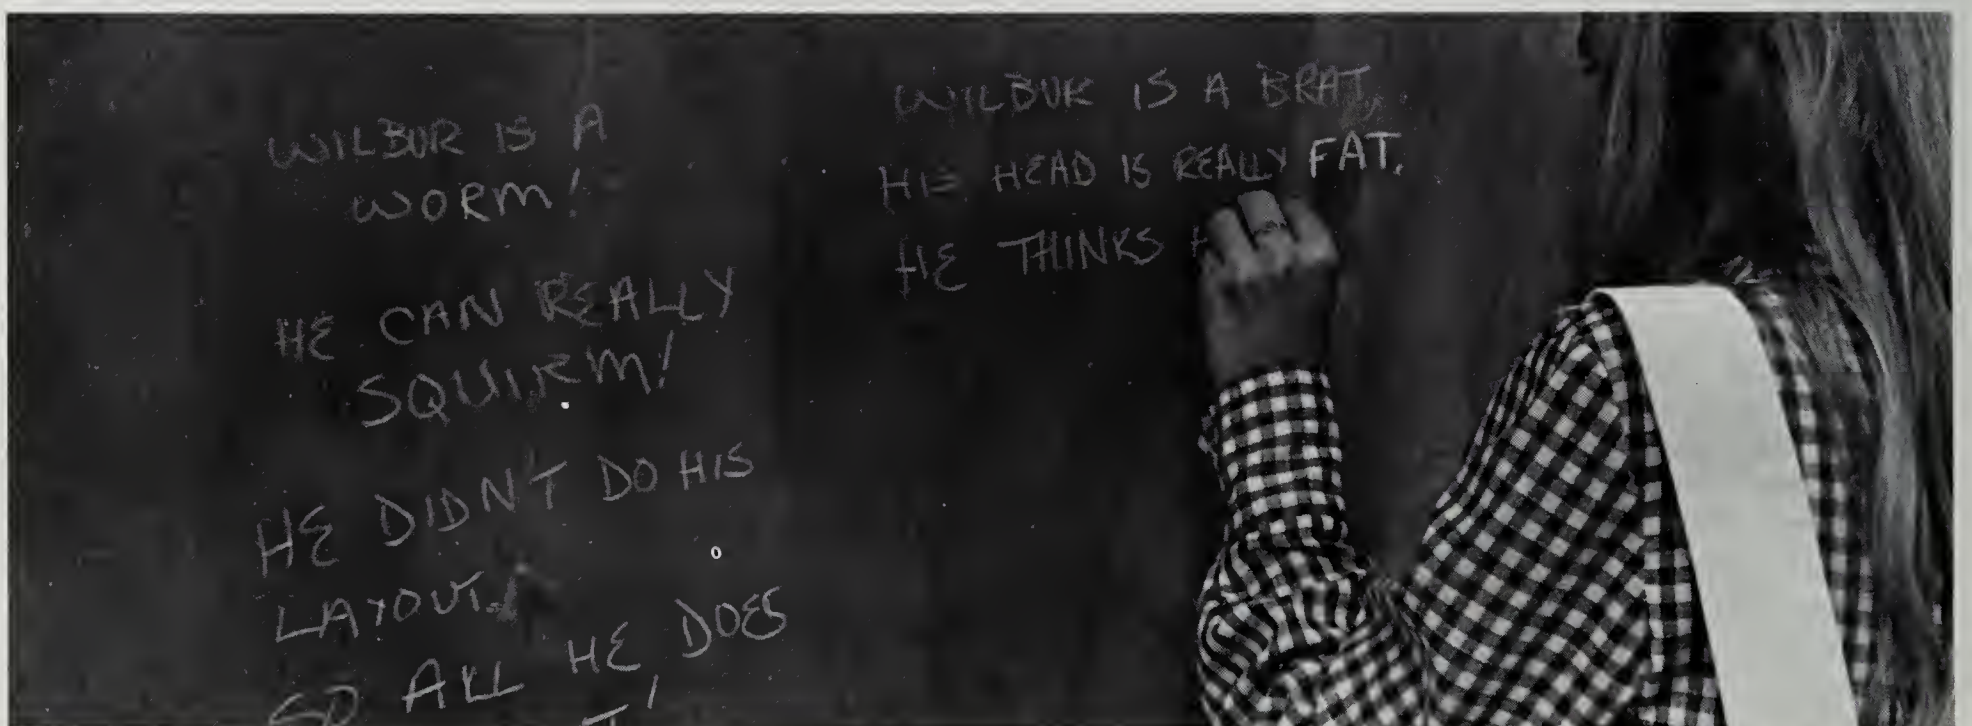 WILBUR IS A
WORM!
HE CAN REALLY
SQUIRM!
HE DIDN'T DO HIS
LAYOUT.
SO ALL HE DOES
WILBUR IS A BRAT.
HIS HEAD IS REALLY FAT.
HE THINKS